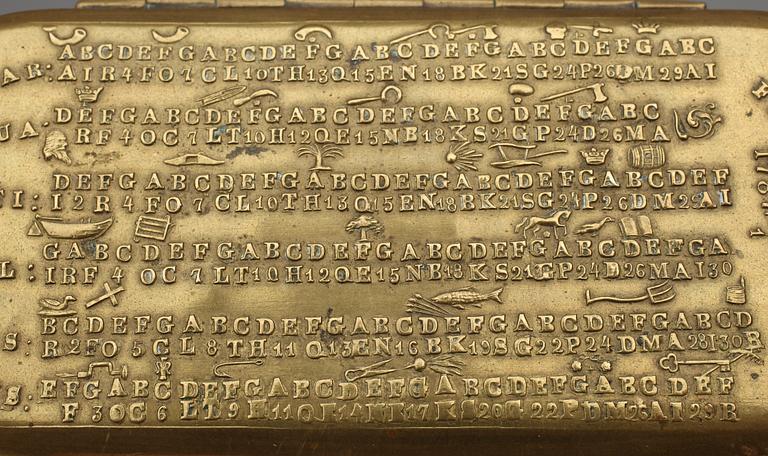 ABCDEFGABCDEFGABCDEFGABCDEFGABC
AR: AIR4FO7CL10TH13Q15EN18BK21SG24P26DM29AI
DEFGABCDEFGABCDEFGABCDEFGABC
UA: RF4OC7LT10H12QE15NB18KS21GP24D26MA
DEFGABCDEFGABCDEFGABCDEFGABCDEF
I: I2R4FO7CL10TH13Q15EN18BK21SG24P26DM29AI
GABCDEFGABCDEFGABCDEFGABCDEFGA
L: IRF4OC7LT10H12QE15NB18KS21GP24D26MAI30
BCDEFGABCDEFGABCDEFGABCDEFGABCD
S: R2FO5CL8TH11Q13EN16BK19SG22P24DMA28I30R
EFGABCDEFGABCDEFGABCDEFGABCDEF
S. F3OC6LT9H11QE14NB17KS20G22PDM26AI29R